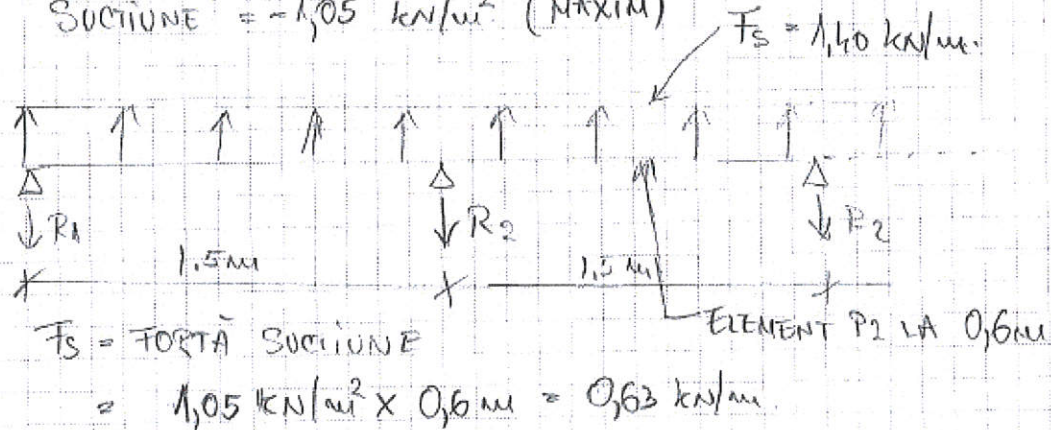 SUCȚIUNE = -1,05 kN/m² (MAXIM)
Fs = 1,40 kN/m.
R1
R2
R2
1.5m
1,5 m
ELEMENT P2 LA 0,6m
Fs = FORȚĂ SUCȚIUNE
= 1,05 kN/m² x 0,6 m = 0,63 kN/m.